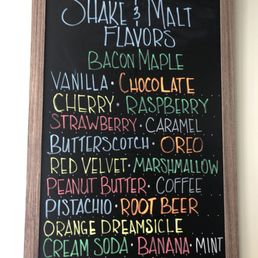 SHAKE & MALT
FLAVORS
BACON MAPLE
VANILLA · CHOCOLATE
CHERRY · RASPBERRY
STRAWBERRY · CARAMEL
BUTTERSCOTCH · OREO
RED VELVET · MARSHMALLOW
PEANUT BUTTER · COFFEE
PISTACHIO · ROOT BEER
ORANGE DREAMSICLE
CREAM SODA · BANANA · MINT